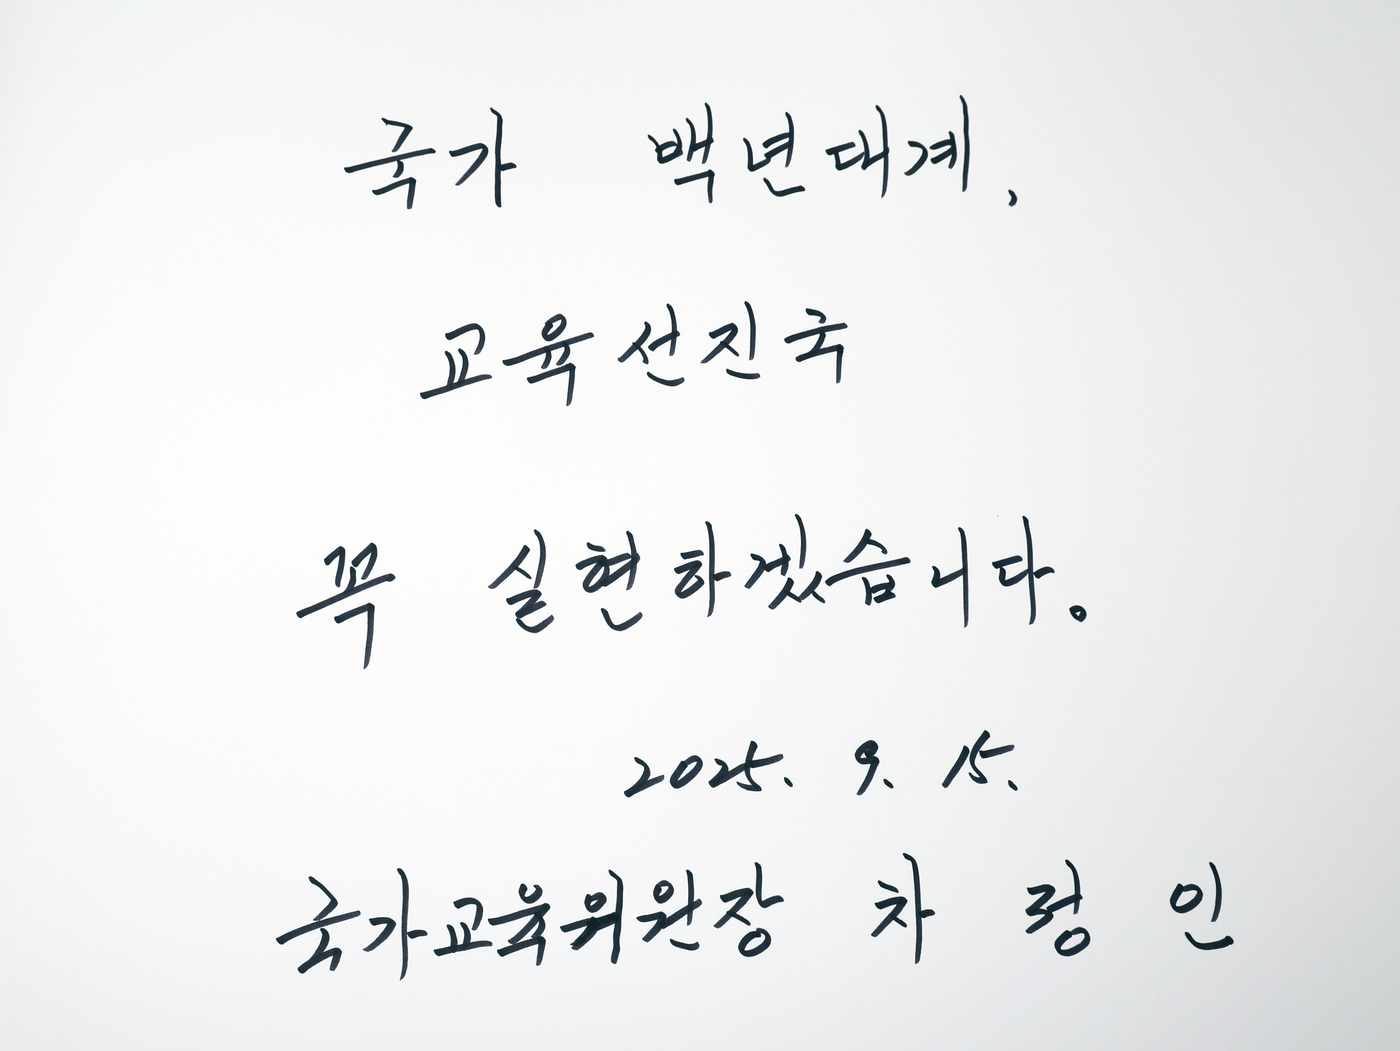 국가 백년대계,
교육선진국
꼭 실현하겠습니다.
2025. 9. 15.
국가교육위원장 차 정 인